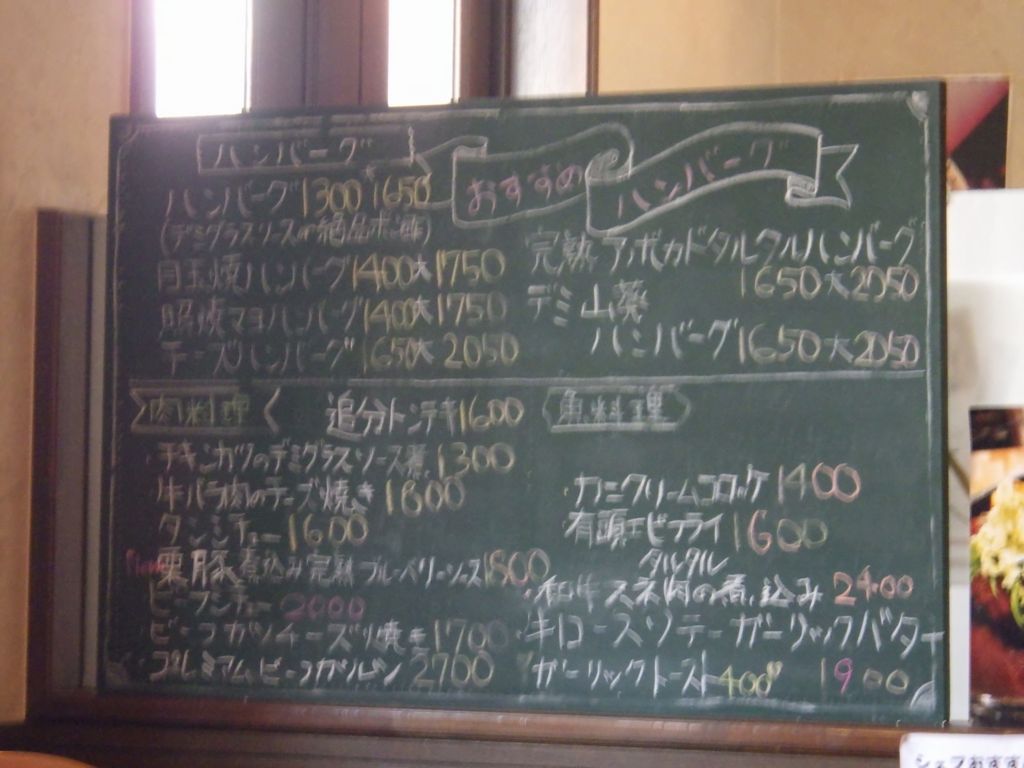 ハンバーグ
ハンバーグ 1300 大1650
(デミグラスソースor絶品ポン酢)
目玉焼ハンバーグ 1400大1750
照焼マヨハンバーグ 1400大1750
チーズハンバーグ 1650大2050
おすすめ ハンバーグ
完熟アボカドタルタルハンバーグ
1650大2050
デミ山薬
ハンバーグ1650大2050
肉料理
追分トンテキ1600
・チキンカツのデミグラスソース煮 1300
牛バラ肉のチーズ焼き 1600
タンシチュー 1600
豚煮込み完熟ブルーベリーソース1800
ビーフシチュー 2000
ビーフカツチーズ焼き1700
プレミアムビーフカツレツ 2700
魚料理
・カニクリームコロッケ 1400
・有頭エビフライ 1600
タルタル
・和牛スネ肉の煮込み 2400
・牛ロースソテーガーリックバター
1900
ガーリックトースト400
シェフおすすめ